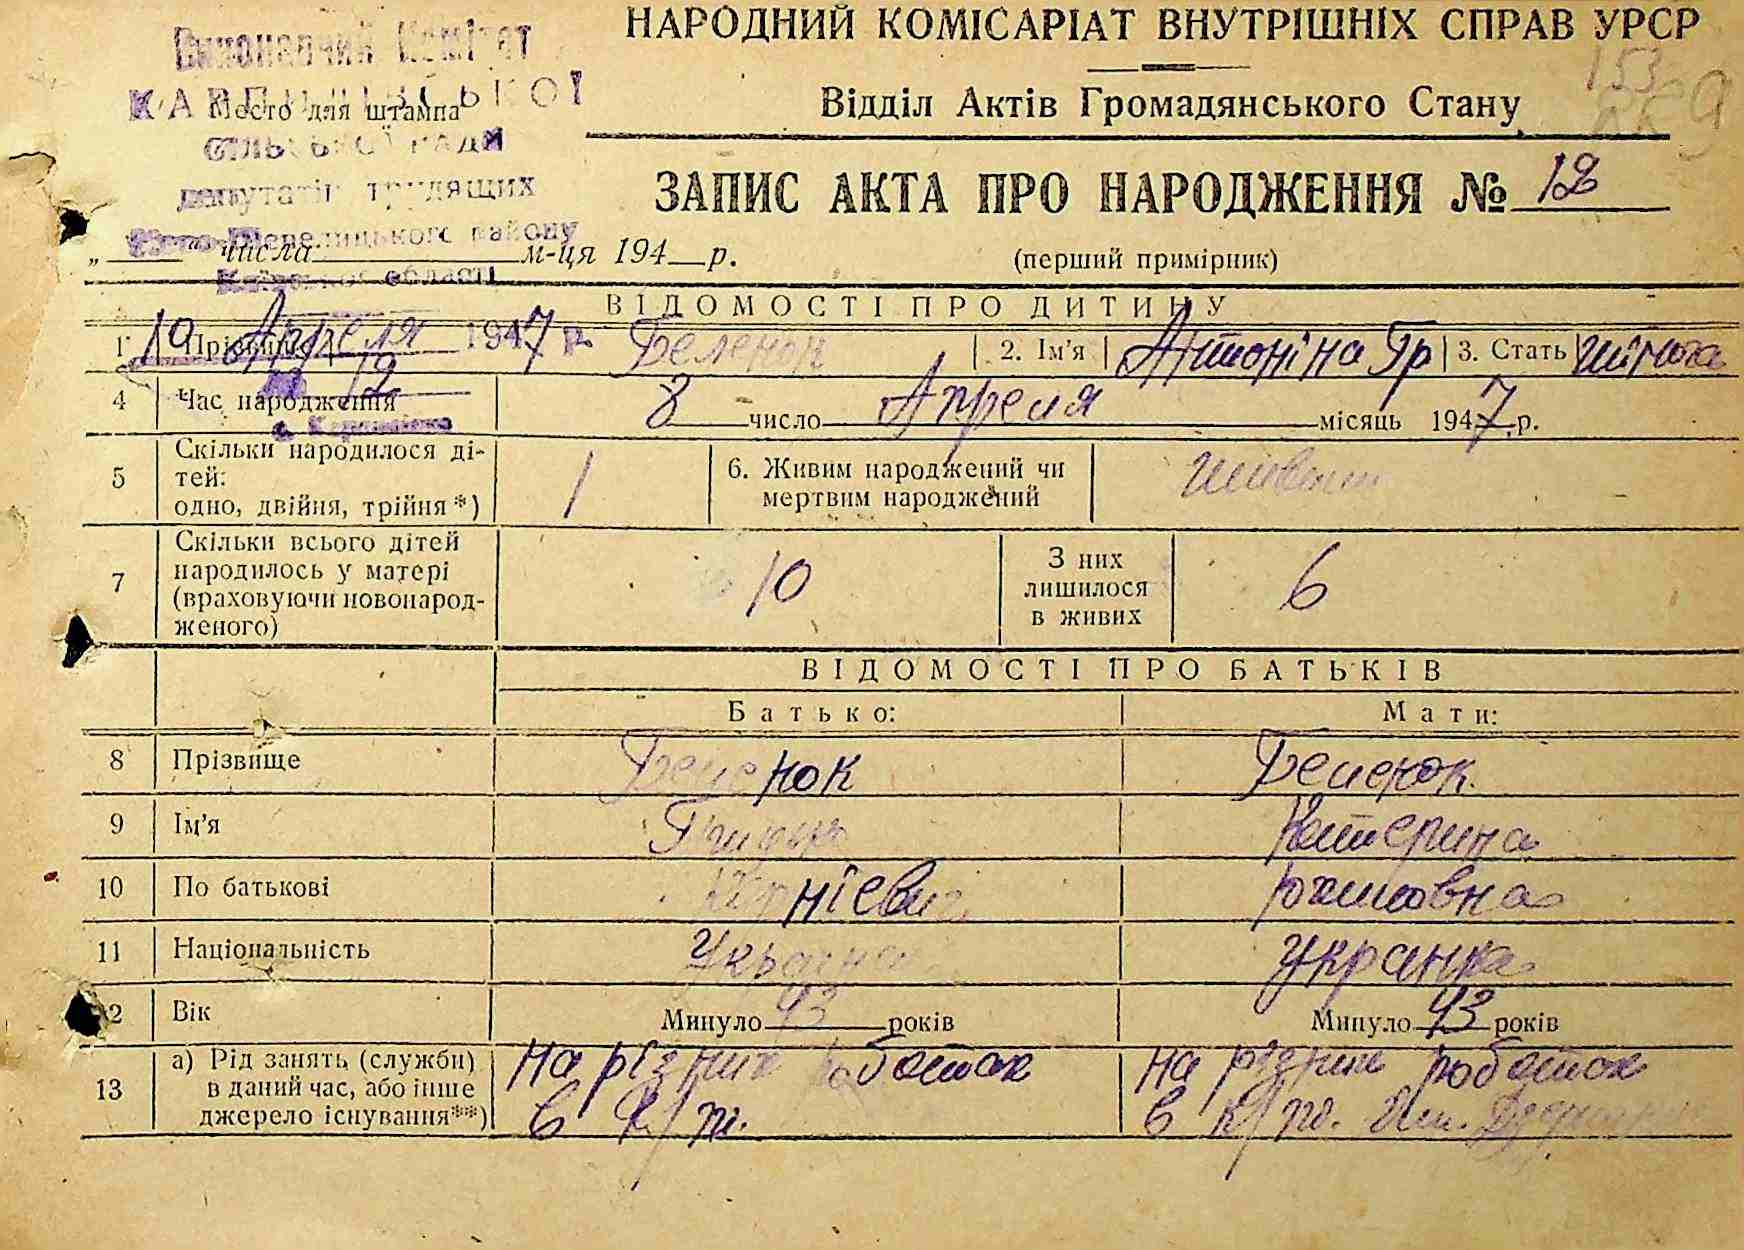 НАРОДНИЙ КОМІСАРІАТ ВНУТРІШНІХ СПРАВ УРСР
Виконавчий Комітет
153
Відділ Актів Громадянського Стану
Место для штампа
сільської ради
ЗАПИС АКТА ПРО НАРОДЖЕННЯ № 12
депутатів трудящих
району
„ числа м-ця 194 р.
(перший примірник)
Київської області
ВІДОМОСТІ ПРО ДИТИНУ
19 Апреля 1947 р.
1 Прізвище Беленок 2. Ім'я Антоніна Гр 3. Стать
12
4 Час народження 8 число Апреля місяць 1947 р.
5 Скільки народилося ді-
тей:
одно, двійня, трійня*) 1 6. Живим народжений чи
мертвим народжений
7 Скільки всього дітей
народилось у матері
(враховуючи новонарод-
женого) 10 З них
лишилося
в живих 6
ВІДОМОСТІ ПРО БАТЬКІВ
Батько: Мати:
8 Прізвище Беленок Беленок
9 Ім'я Катерина
10 По батькові
11 Національність Українец Украинка
12 Вік Минуло 43 років Минуло 43 років
13 а) Рід занять (служби)
в даний час, або інше
джерело існування**)
на різних роботах на різних роботах
в к/п. в к/п. Им.